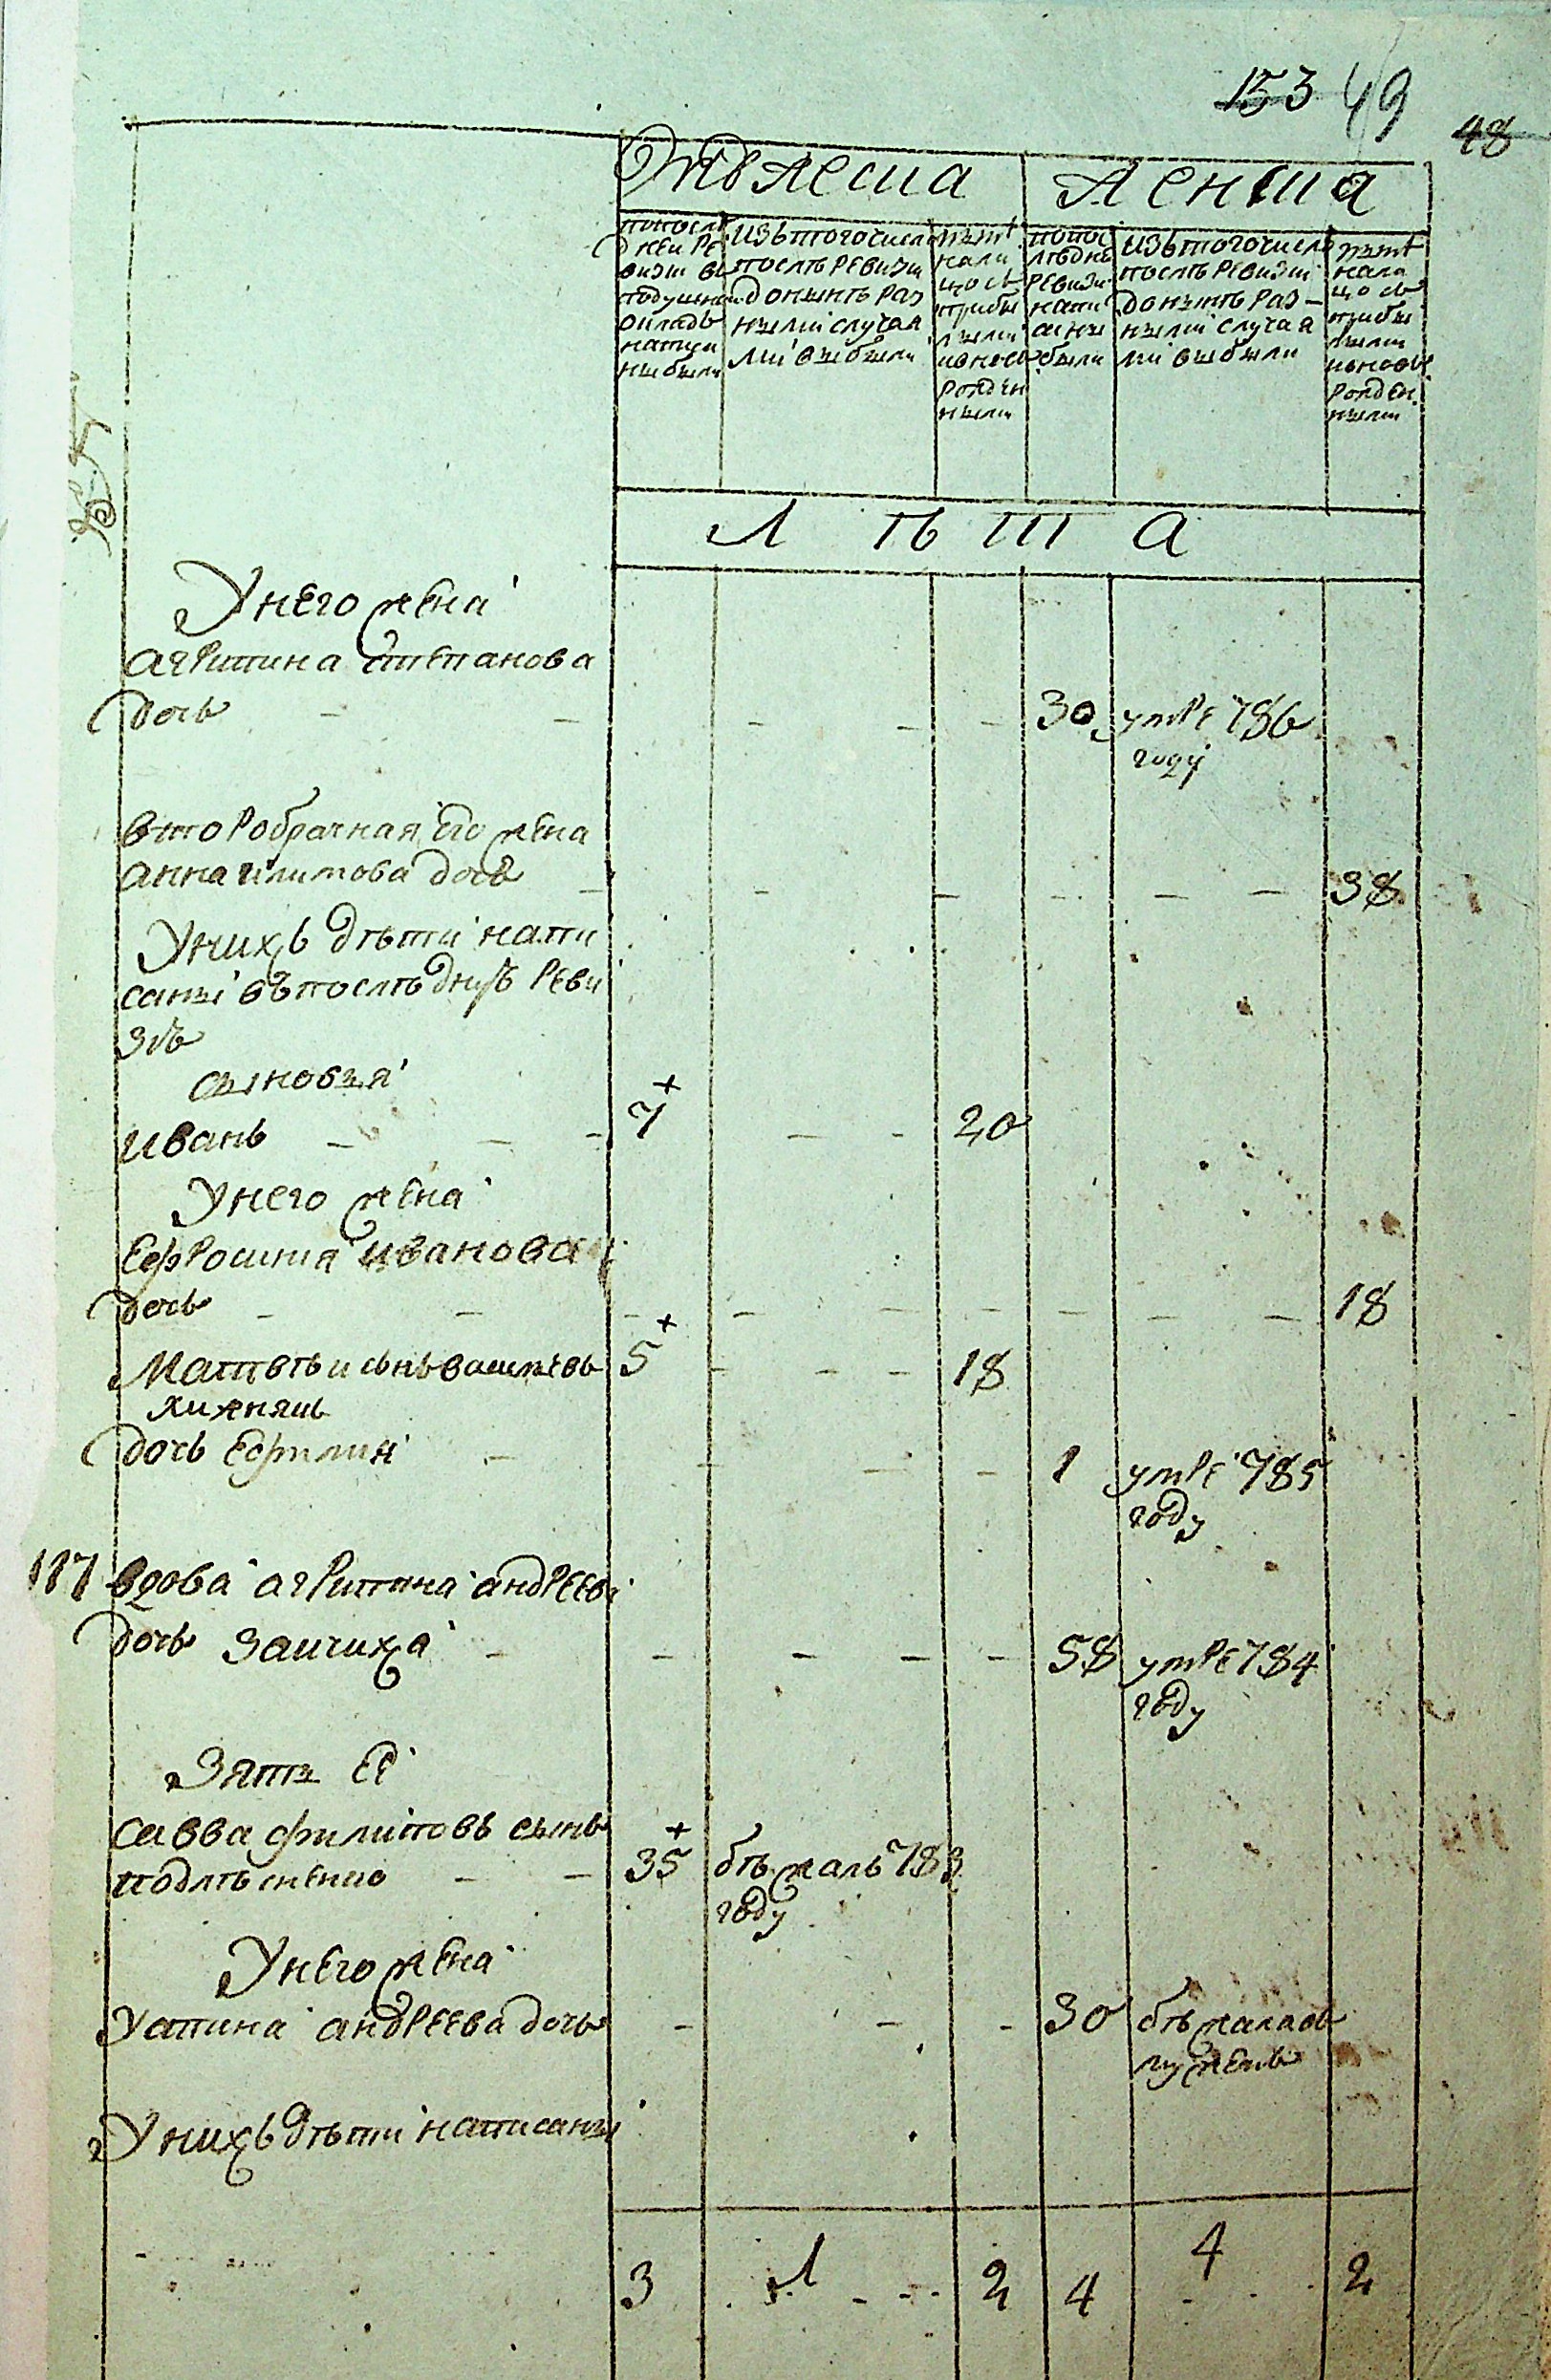 153 49
48
Мужеска Женска
по после
дней ре
визи въ
подушном
окладъ
написа
ны были
изъ того числа
послѣ ревизи
до нынѣ раз
ными случая
ми выбыли
нынѣ
нали
цо съ
прибы
лыми
и вновь
рожден
ными
по пос
лѣдне
ревизи
напи
саны
были
изъ того числа
послѣ ревизи
до нынѣ раз-
ными случая
ми выбыли
нынѣ
нали
цо съ
прибы
лыми
и вновь
рожден
ными
Л ѣ т а
У него жена
агрипина степанова
дочь - - - - - 30 умре 786
году
второбрачная его жена
анна климова дочь - - - - - - 38
У нихъ дѣти напи
саны въ послѣднѣй реви
зѣ
сыновья
иванъ - - - 7 + - - 20
У него жена
ефросиния иванова
дочь - - - - - - - - - 18
Матвѣи сынъ васильевъ 5 + - - - 18
дочь ефимия - - - - 1 умре 785
году
117 вдова агрипина андреева
дочь заичиха - - - - - 58 умре 784
году
Зять ее
савва филиповъ сынъ
- - 35 + бѣжалъ 783
году
У него жена
устина андреева дочь - - - 30 бѣжала съ
мужемъ
У нихъ дѣти написаны
3 1 - - - 2 4 4 - - 2